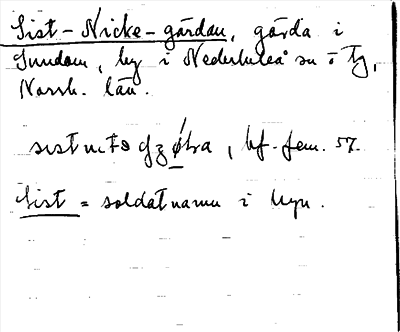 Sist-Nicke-gårdan, gärda i
Sundom, by i Nederluleå sn o tg,
Norrb. län.
bf. fem. 57.
Sist = soldatnamn i byn.